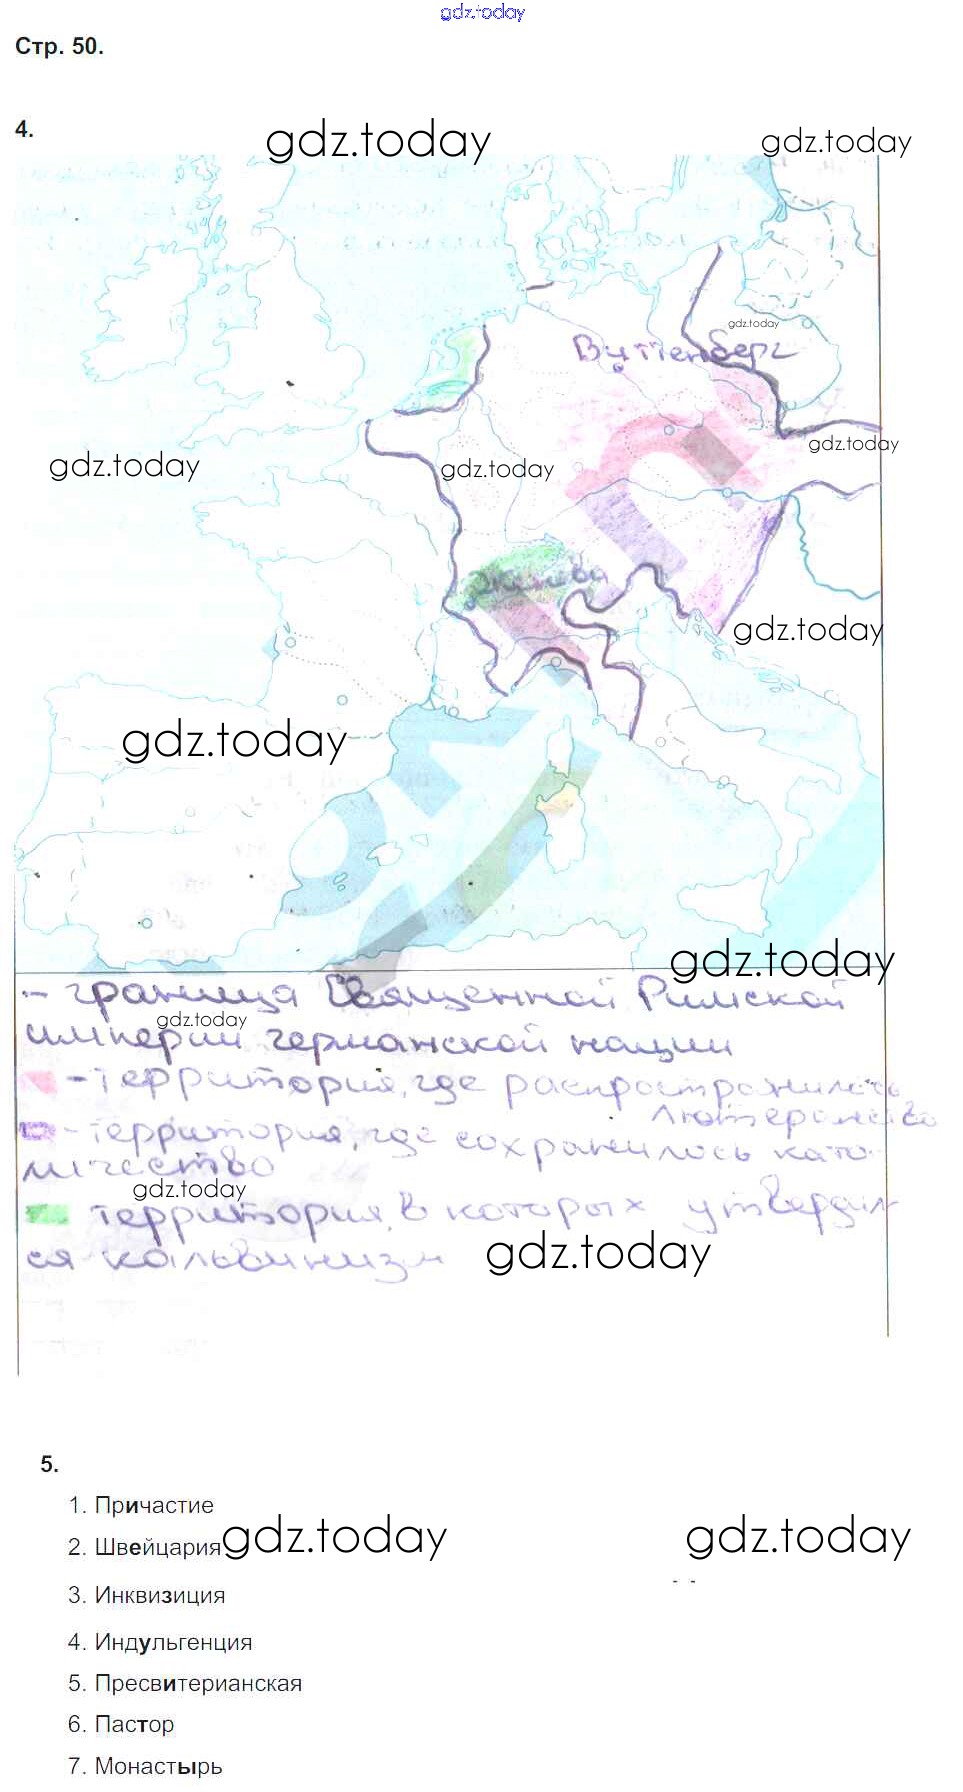 gdz.today
Стр. 50.
4.
gdz.today
gdz.today
gdz.today
Виттенберг
gdz.today
gdz.today
gdz.today
Женева
gdz.today
gdz.today
gdz.today
- граница Священной Римской
gdz.today
империи германской нации
- территория, где распространилось
лютеранство
- территория, где сохранилось като-
личество
gdz.today
территория, в которых утвердил-
ся кальвинизм
gdz.today
5.
1. Причастие
2. Швейцария
gdz.today
gdz.today
3. Инквизиция
4. Индульгенция
5. Пресвитерианская
6. Пастор
7. Монастырь